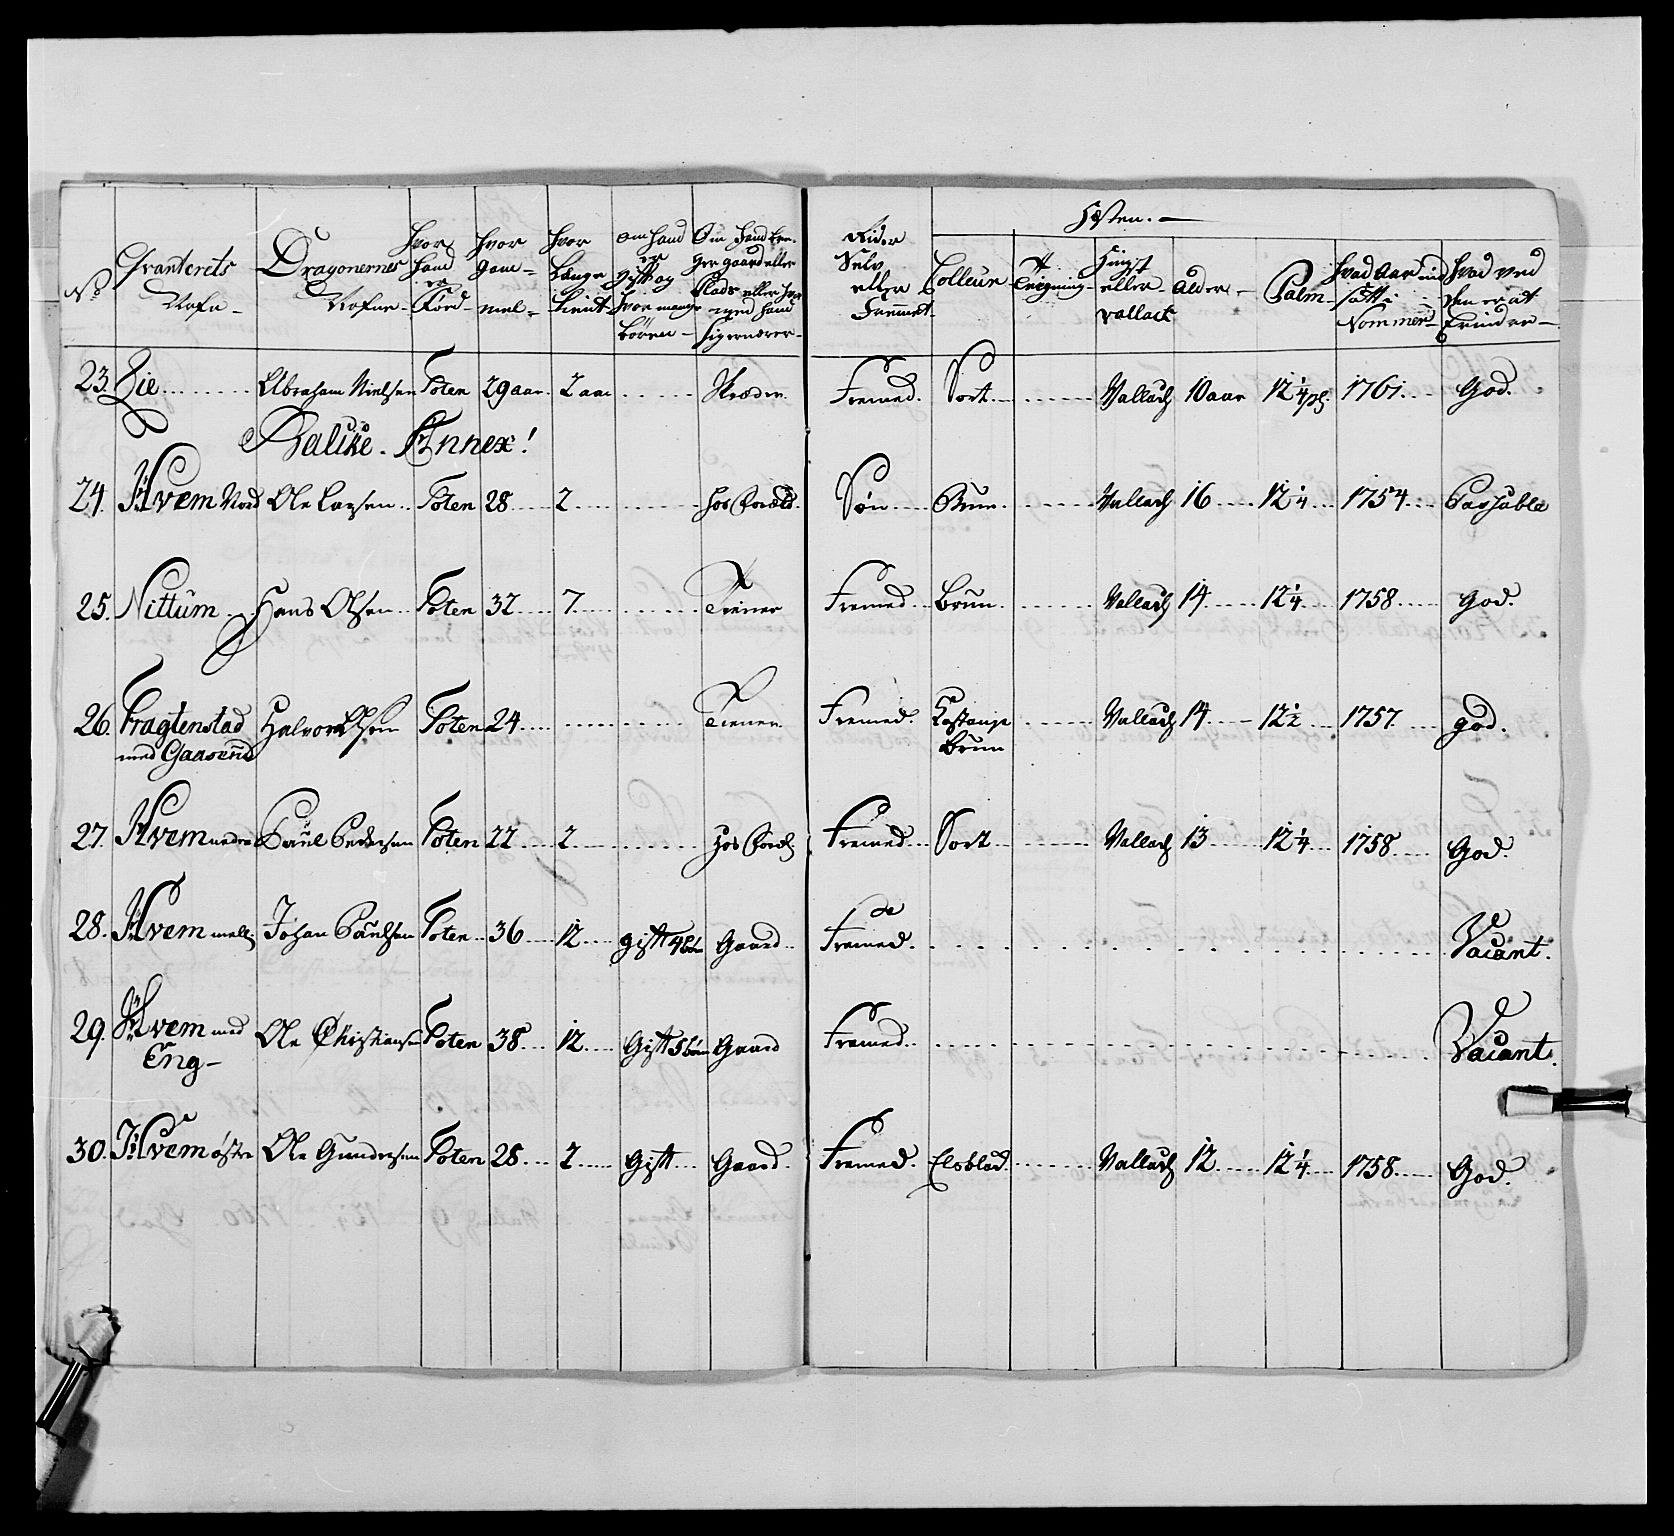 Hæsten. —
No
Qvarterets Nafn -
Dragonernes Nafne -
Hvor Hand er Född -
Hvor Gam- mel -
Hvor Længe tient
om Hand er Gift og Hvor mange Börn -
Om Hand bru- ger gaard eller Plads eller Hvor med Hand sig ernærer -
Rider Selv eller Fremmet -
Colleur
Teigning
Hingst eller vallack
Alder -
Palm -
Hvad Aar ind satt i Nommer -
Hvad ved den er at Erindre -
23. Lie Abraham Nielsen Toten 29 aar 2 aar Skræder Fremed. Sort Vallach 10 aar 12 1/4 pl. 1761 God.
Balike - Annex!
24. Hvem Nord Ole Larsen Toten 28 2 Hos Forældr. Søn Brun Vallach 16 12 1/4 1754 Passable
25. Nittum Hans Olsen Toten 32 7 Tiener Fremed Brun Vallach 14 12 1/4 1758 God.
26. Fragtenstad Halvor Olsen Toten 24 Tiener Fremed. Kastanje Vallach 14 12 1/2 1757 god.
med Gaasend Brun
27. Hvem nedre Paul Pedersen Toten 22 2 Hos Foræld Fremed Sort Vallach 13 12 1/4 1758 God.
28. Hvem mell: Johan Paulsen Toten 36 12 gift 4 bör Gaard Fremed. Vacant.
29. Hvem med Ole Christiansen Toten 38 12 Gift 5 börn Gaard Fremed Vacant.
Eng -
30. Hvem østre Ole Gundersen Toten 28 2 Gift Gaard Fremed. Elsblad Vallach 12 12 1/4 1758 God.